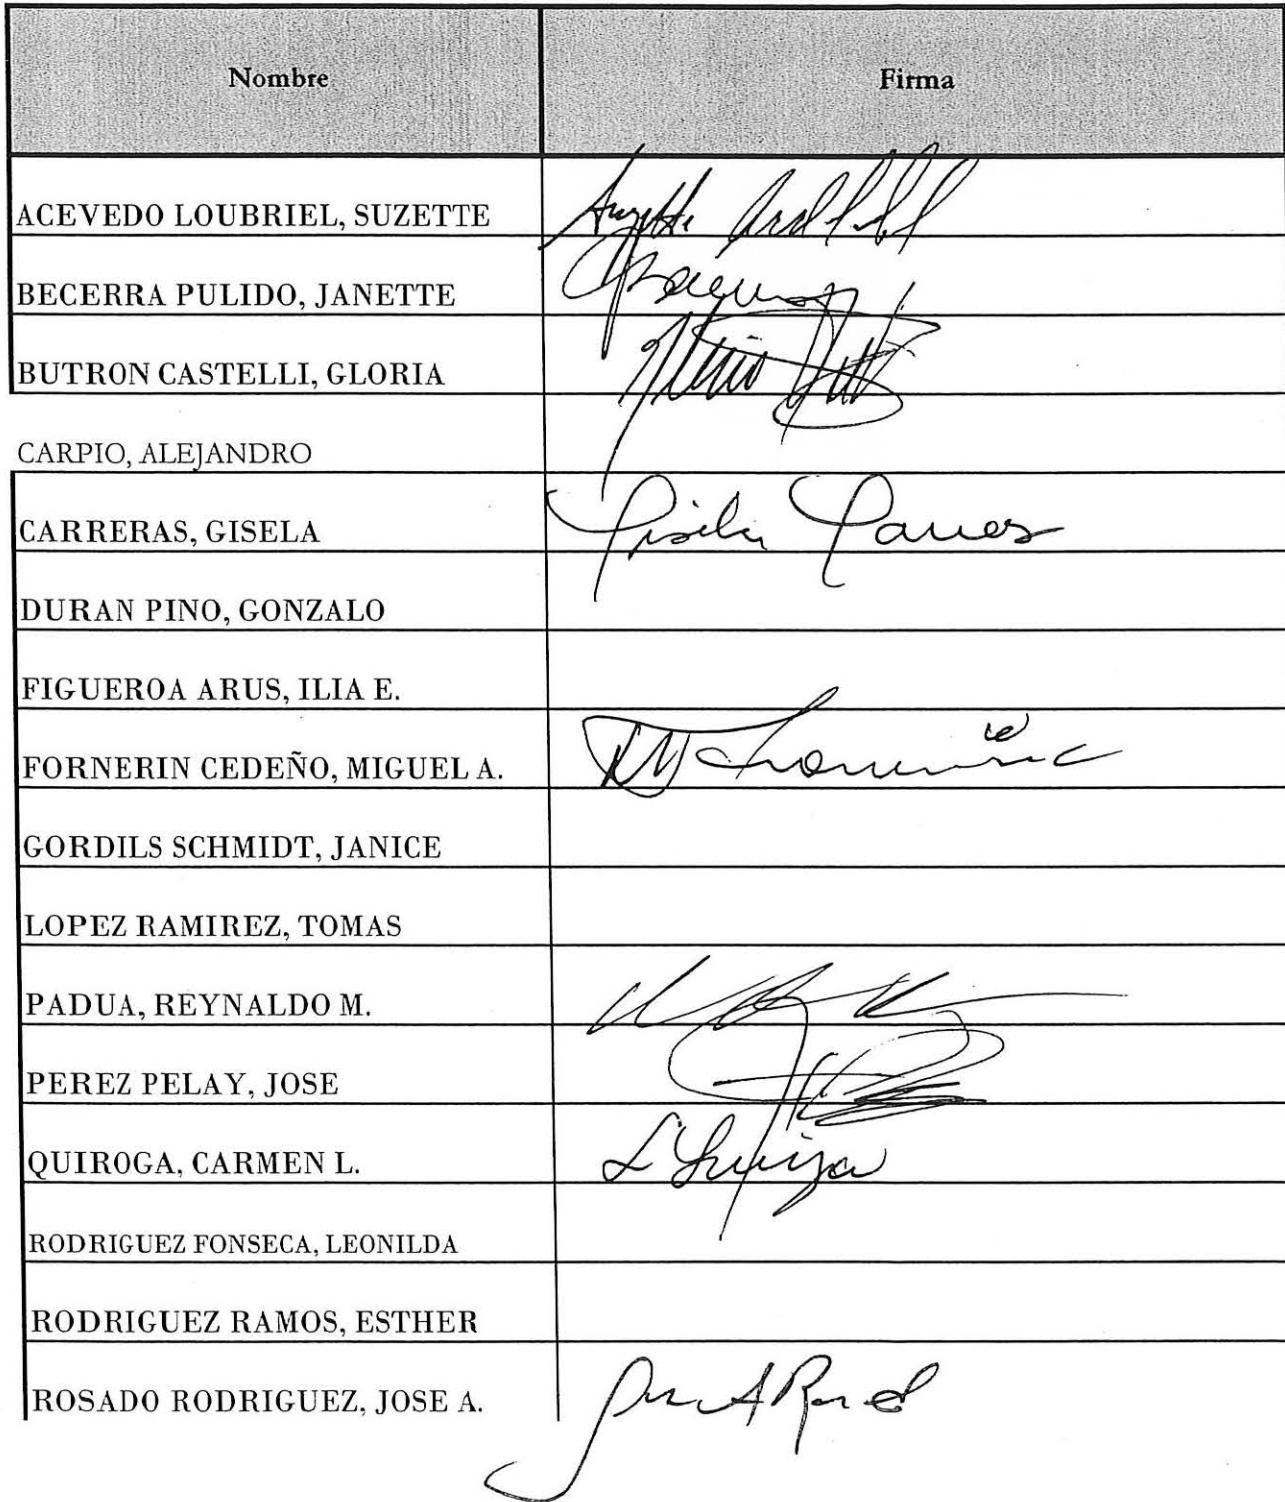 Nombre Firma
ACEVEDO LOUBRIEL, SUZETTE Suzette
BECERRA PULIDO, JANETTE
BUTRON CASTELLI, GLORIA
CARPIO, ALEJANDRO
CARRERAS, GISELA Gisela
DURAN PINO, GONZALO
FIGUEROA ARUS, ILIA E.
FORNERIN CEDEÑO, MIGUEL A.
GORDILS SCHMIDT, JANICE
LOPEZ RAMIREZ, TOMAS
PADUA, REYNALDO M.
PEREZ PELAY, JOSE
QUIROGA, CARMEN L.
RODRIGUEZ FONSECA, LEONILDA
RODRIGUEZ RAMOS, ESTHER
ROSADO RODRIGUEZ, JOSE A.